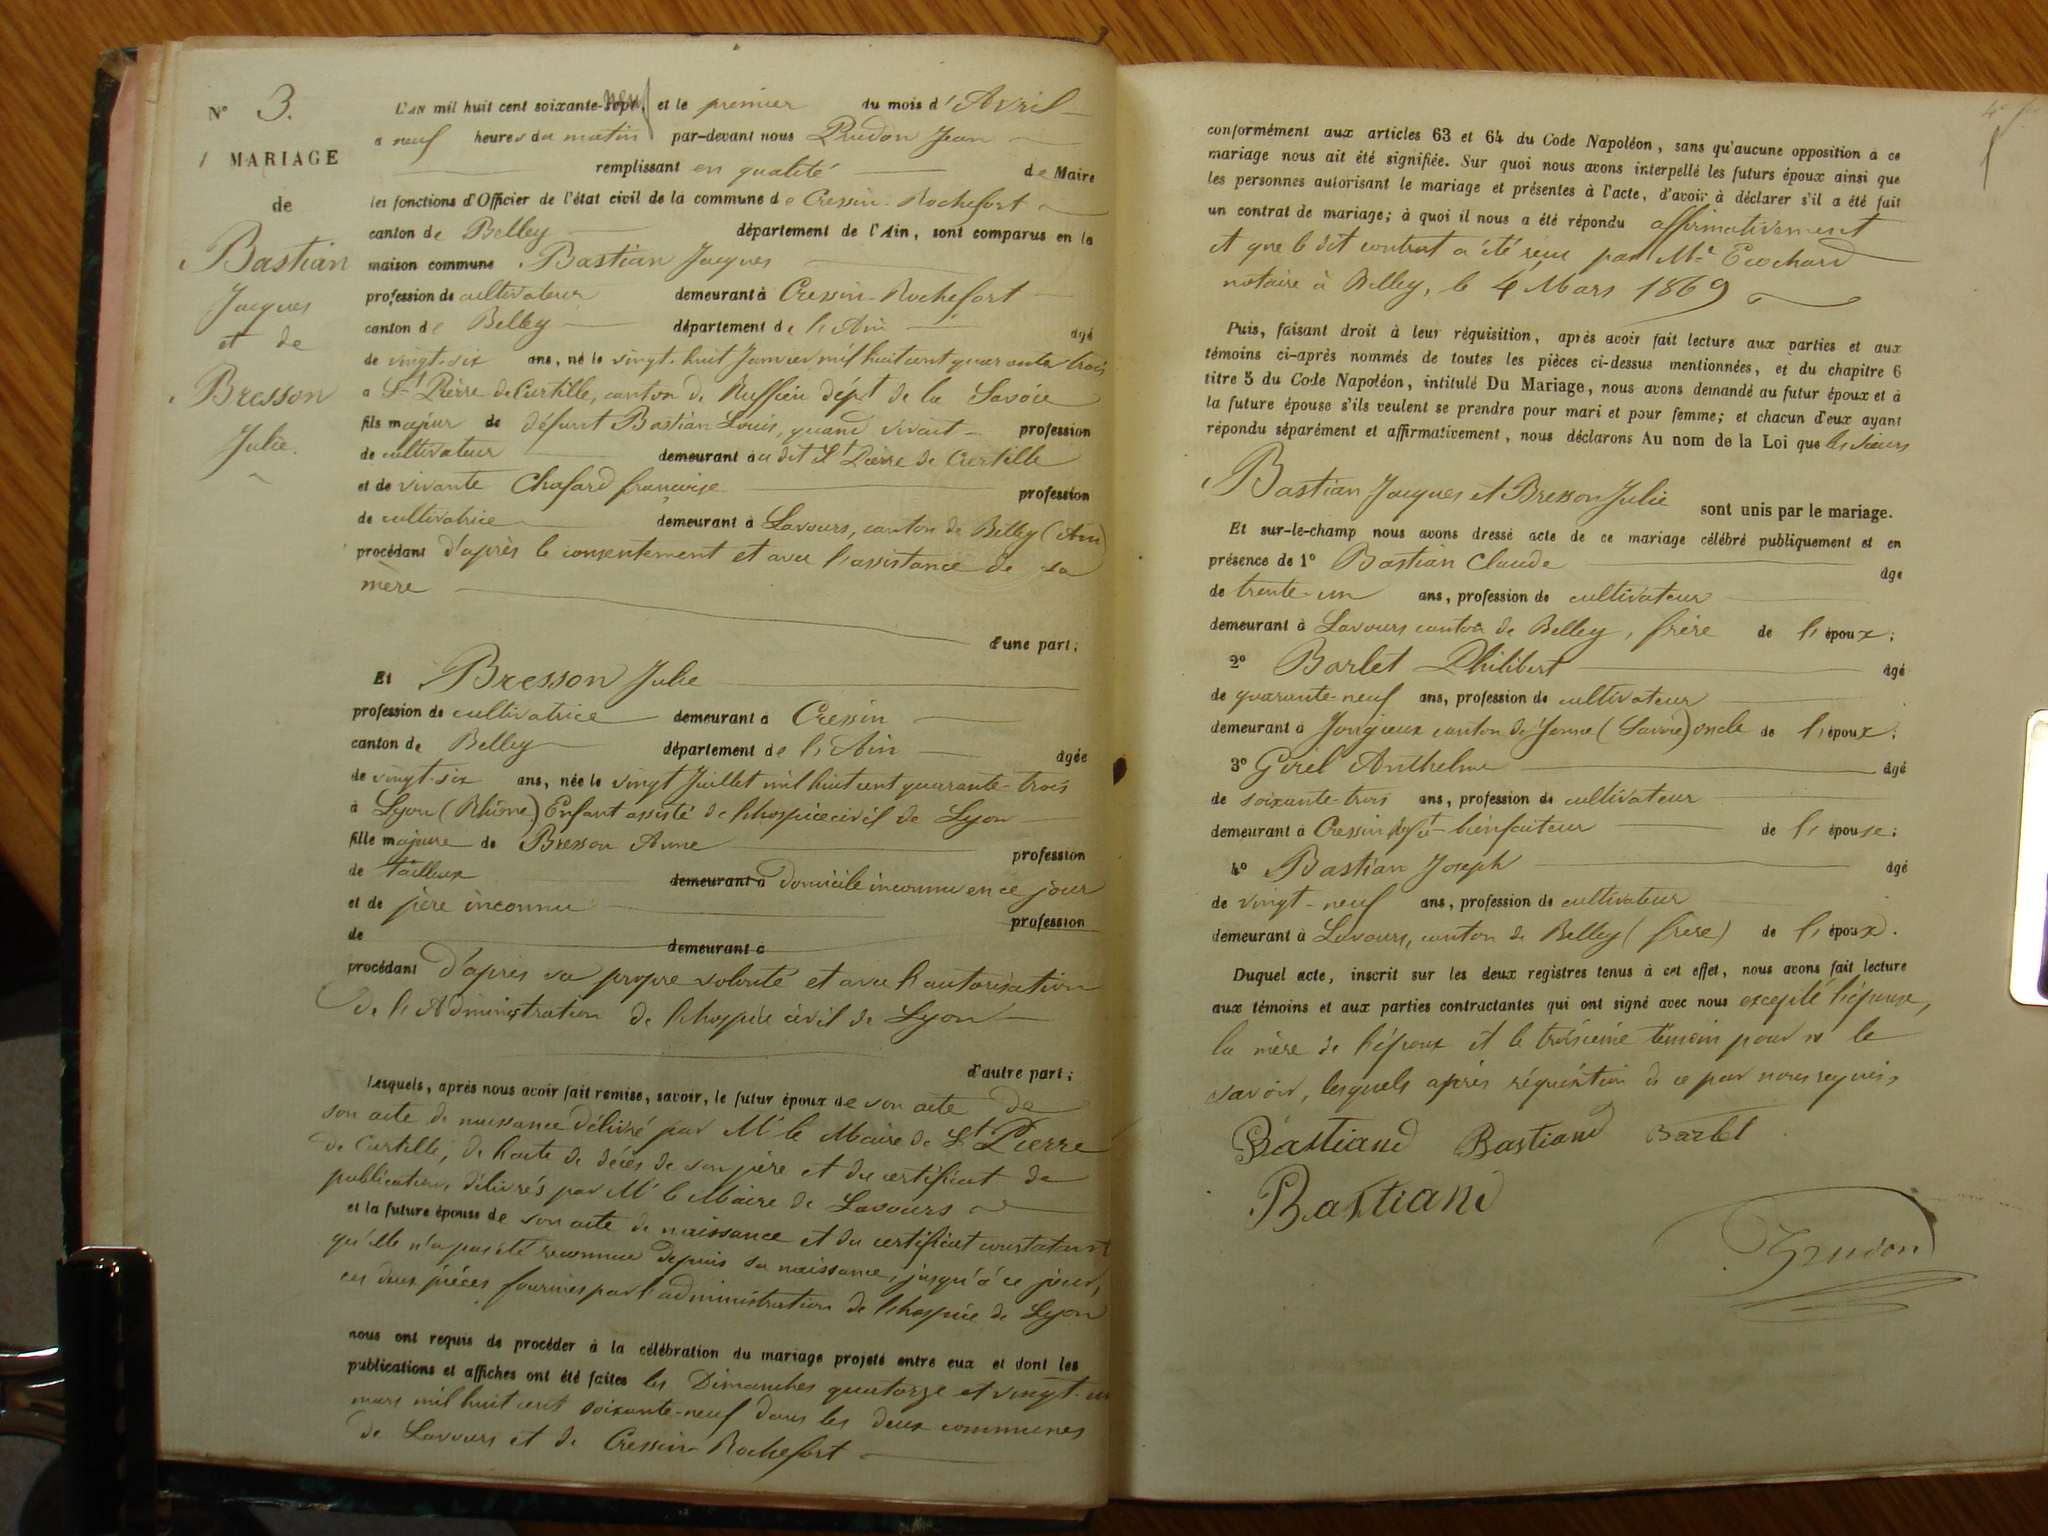 N° 3.
MARIAGE
de
Bastian
Jacques
et de
Bresson
Julie.
L'AN mil huit cent soixante-sept, neuf et le premier du mois d'Avril
a neuf heures du matin par-devant nous Prudon Jean
remplissant en qualité de Maire
les fonctions d'Officier de l'état civil de la commune de Cressin-Rochefort
canton de Belley département de l'Ain, sont comparus en la
maison commune Bastian Jacques
profession de cultivateur demeurant à Cressin-Rochefort
canton de Belley département de l'Ain âgé
de vingt-six ans, né le vingt-huit Janvier mil huit cent quarante trois
a St Pierre de Curtille, canton de Ruffieu dépt de la Savoie
fils majeur de défunt Bastian Louis, quand vivait profession
de cultivateur demeurant au dit St Pierre de Curtille
et de vivante Chafard françoise profession
de cultivatrice demeurant à Lavours, canton de Belley (Ain)
procédant d'après le consentement et avec l'assistance de sa
mère
d'une part;
Et Bresson Julie
profession de cultivatrice demeurant à Cressin
canton de Belley département de l'Ain âgée
de vingt-six ans, née le vingt Juillet mil huit cent quarante-trois
à Lyon (Rhône) Enfant assisté de l'hospice civil de Lyon
fille majeure de Bresson Anne profession
de tailleuse demeurant à domicile inconnu en ce jour
et de père inconnu profession
de demeurant à
procédant d'après sa propre volonté et avec l'autorisation
de l'Administration de l'hospice civil de Lyon
d'autre part;
Lesquels, après nous avoir fait remise, savoir, le futur époux de son acte de
son acte de naissance délivré par Mr le Maire de St Pierre
de Curtille, de l'acte de décès de son père et du certificat de
publication, délivrés par Mr le Maire de Lavours
et la future épouse de son acte de naissance et du certificat constatant
qu'elle n'a pas été reconnue depuis sa naissance, jusqu'à ce jour,
ces deux pièces fournies par l'administration de l'hospice de Lyon
nous ont requis de procéder à la célébration du mariage projeté entre eux et dont les
publications et affiches ont été faites les Dimanches quatorze et vingt-un
mars mil huit cent soixante-neuf dans les deux communes
de Lavours et de Cressin-Rochefort
conformément aux articles 63 et 64 du Code Napoléon, sans qu'aucune opposition à ce
mariage nous ait été signifiée. Sur quoi nous avons interpellé les futurs époux ainsi que
les personnes autorisant le mariage et présentes à l'acte, d'avoir à déclarer s'il a été fait
un contrat de mariage; à quoi il nous a été répondu affirmativement
et que le dit contrat a été reçu par Me Ecochard
notaire à Belley, le 4 Mars 1869
Puis, faisant droit à leur réquisition, après avoir fait lecture aux parties et aux
témoins ci-après nommés de toutes les pièces ci-dessus mentionnées, et du chapitre 6
titre 5 du Code Napoléon, intitulé Du Mariage, nous avons demandé au futur époux et à
la future épouse s'ils veulent se prendre pour mari et pour femme; et chacun d'eux ayant
répondu séparément et affirmativement, nous déclarons Au nom de la Loi que les sieurs
Bastian Jacques et Bresson Julie sont unis par le mariage.
Et sur-le-champ nous avons dressé acte de ce mariage célébré publiquement et en
présence de 1° Bastian Claude âgé
de trente-un ans, profession de cultivateur
demeurant à Lavours canton de Belley, frère de l'époux;
2° Barlet Philibert âgé
de quarante-neuf ans, profession de cultivateur
demeurant à Jongieux canton d'Yenne (Savoie) oncle de l'époux;
3° Girel Anthelme âgé
de soixante-trois ans, profession de cultivateur
demeurant à Cressin bienfaiteur de l'épouse;
4° Bastian Joseph âgé
de vingt-neuf ans, profession de cultivateur
demeurant à Lavours, canton de Belley (frère) de l'époux.
Duquel acte, inscrit sur les deux registres tenus à cet effet, nous avons fait lecture
aux témoins et aux parties contractantes qui ont signé avec nous excepté l'épouse,
la mère de l'époux et le troisième témoin pour ne le
savoir, lesquels après réquisition de ce par nous requis,
Bastiand Bastiand Barlet
Bastiand
Prudon